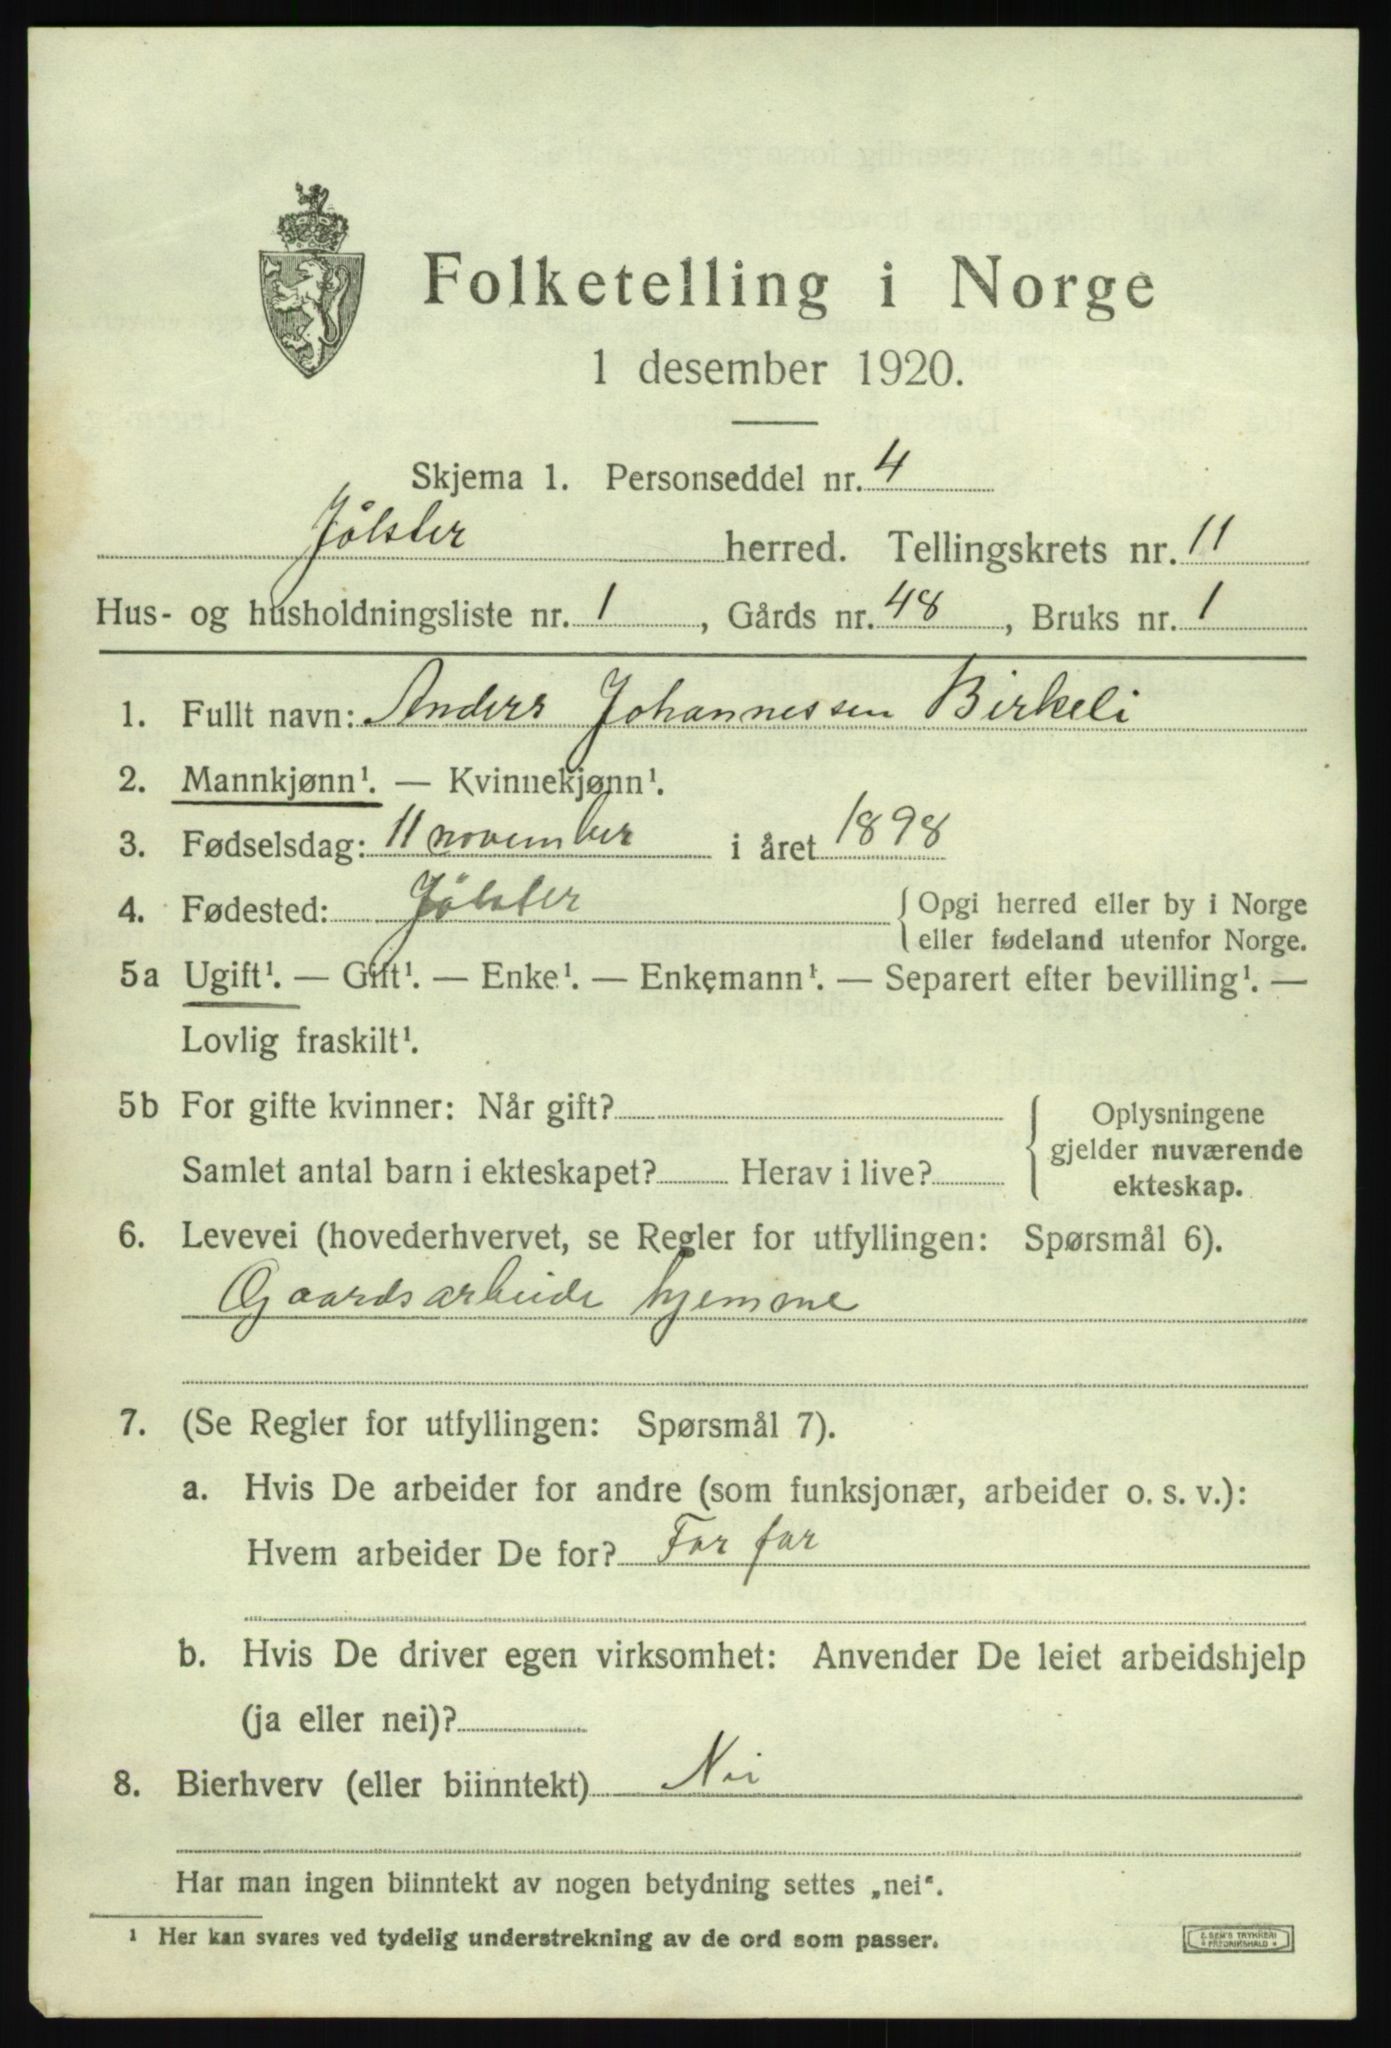 Folketelling i Norge
1 desember 1920.
Skjema 1. Personseddel nr. 4
Jølster herred. Tellingskrets nr. 11
Hus- og husholdningsliste nr. 1, Gårds nr. 48, Bruks nr. 1
1. Fullt navn: Anders Johannessen Birkeli
2. Mannkjønn¹. — Kvinnekjønn¹.
3. Fødselsdag: 11 november i året 1898
4. Fødested: Jølster { Opgi herred eller by i Norge
eller fødeland utenfor Norge.
5a Ugift¹. — Gift¹. — Enke¹. — Enkemann¹. — Separert efter bevilling¹. —
Lovlig fraskilt¹.
5b For gifte kvinner: Når gift? { Oplysningene
gjelder nuværende
Samlet antal barn i ekteskapet? Herav i live? ekteskap.
6. Levevei (hovederhvervet, se Regler for utfyllingen: Spørsmål 6).
Gaardsarbeide hjemme
7. (Se Regler for utfyllingen: Spørsmål 7).
a. Hvis De arbeider for andre (som funksjonær, arbeider o. s. v.):
Hvem arbeider De for? For far
b. Hvis De driver egen virksomhet: Anvender De leiet arbeidshjelp
(ja eller nei)?
8. Bierhverv (eller biinntekt) Nei
Har man ingen biinntekt av nogen betydning settes „nei“.
¹ Her kan svares ved tydelig understrekning av de ord som passer.
E. SEM'S TRYKKERI
* FREDRIKSHALD *